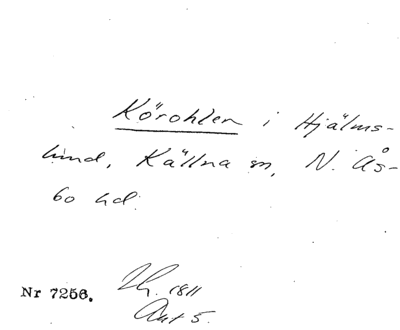 Körohlen i Hjälms-
lund, Källna sn, N. Ås-
bo hd.
Nr 7256. Th. 1811
Akt 5.